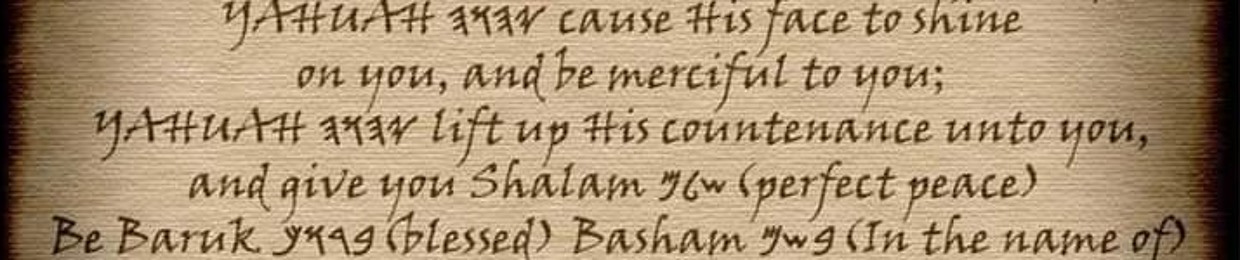 YAHUAH 𐤉𐤄𐤅𐤄 cause His face to shine
on you, and be merciful to you;
YAHUAH 𐤉𐤄𐤅𐤄 lift up His countenance unto you,
and give you Shalam 𐤔𐤋𐤌 (perfect peace)
Be Baruk 𐤁𐤓𐤅𐤊 (blessed) Basham 𐤁𐤔𐤌 (In the name of)